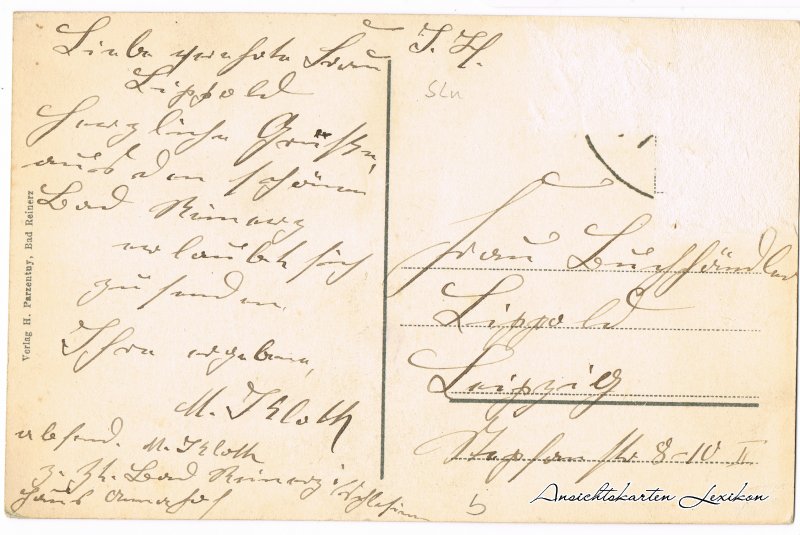 Liebe geehrte Frau
Lippold
herzliche Grüsse,
aus dem schönen
Bad Reinerz
erlaubt sich
zu senden
Ihre ergebene,
M. Kloth
absend. M. Kloth
z. Zt. Bad Reinerz i/Schlesien
Haus
Verlag H. Parzentuy, Bad Reinerz
SLn
Frau Buchhändler
Lippold
Leipzig
Stephanstr 8-10 II
b
Ansichtskarten Lexikon